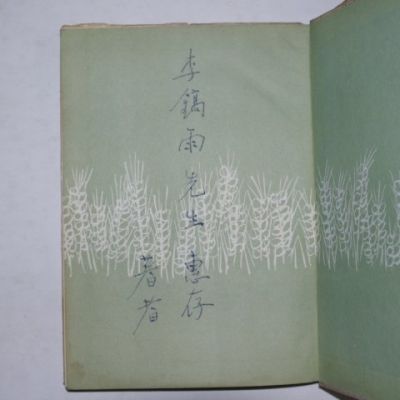 李鎬雨先生 惠存
著者